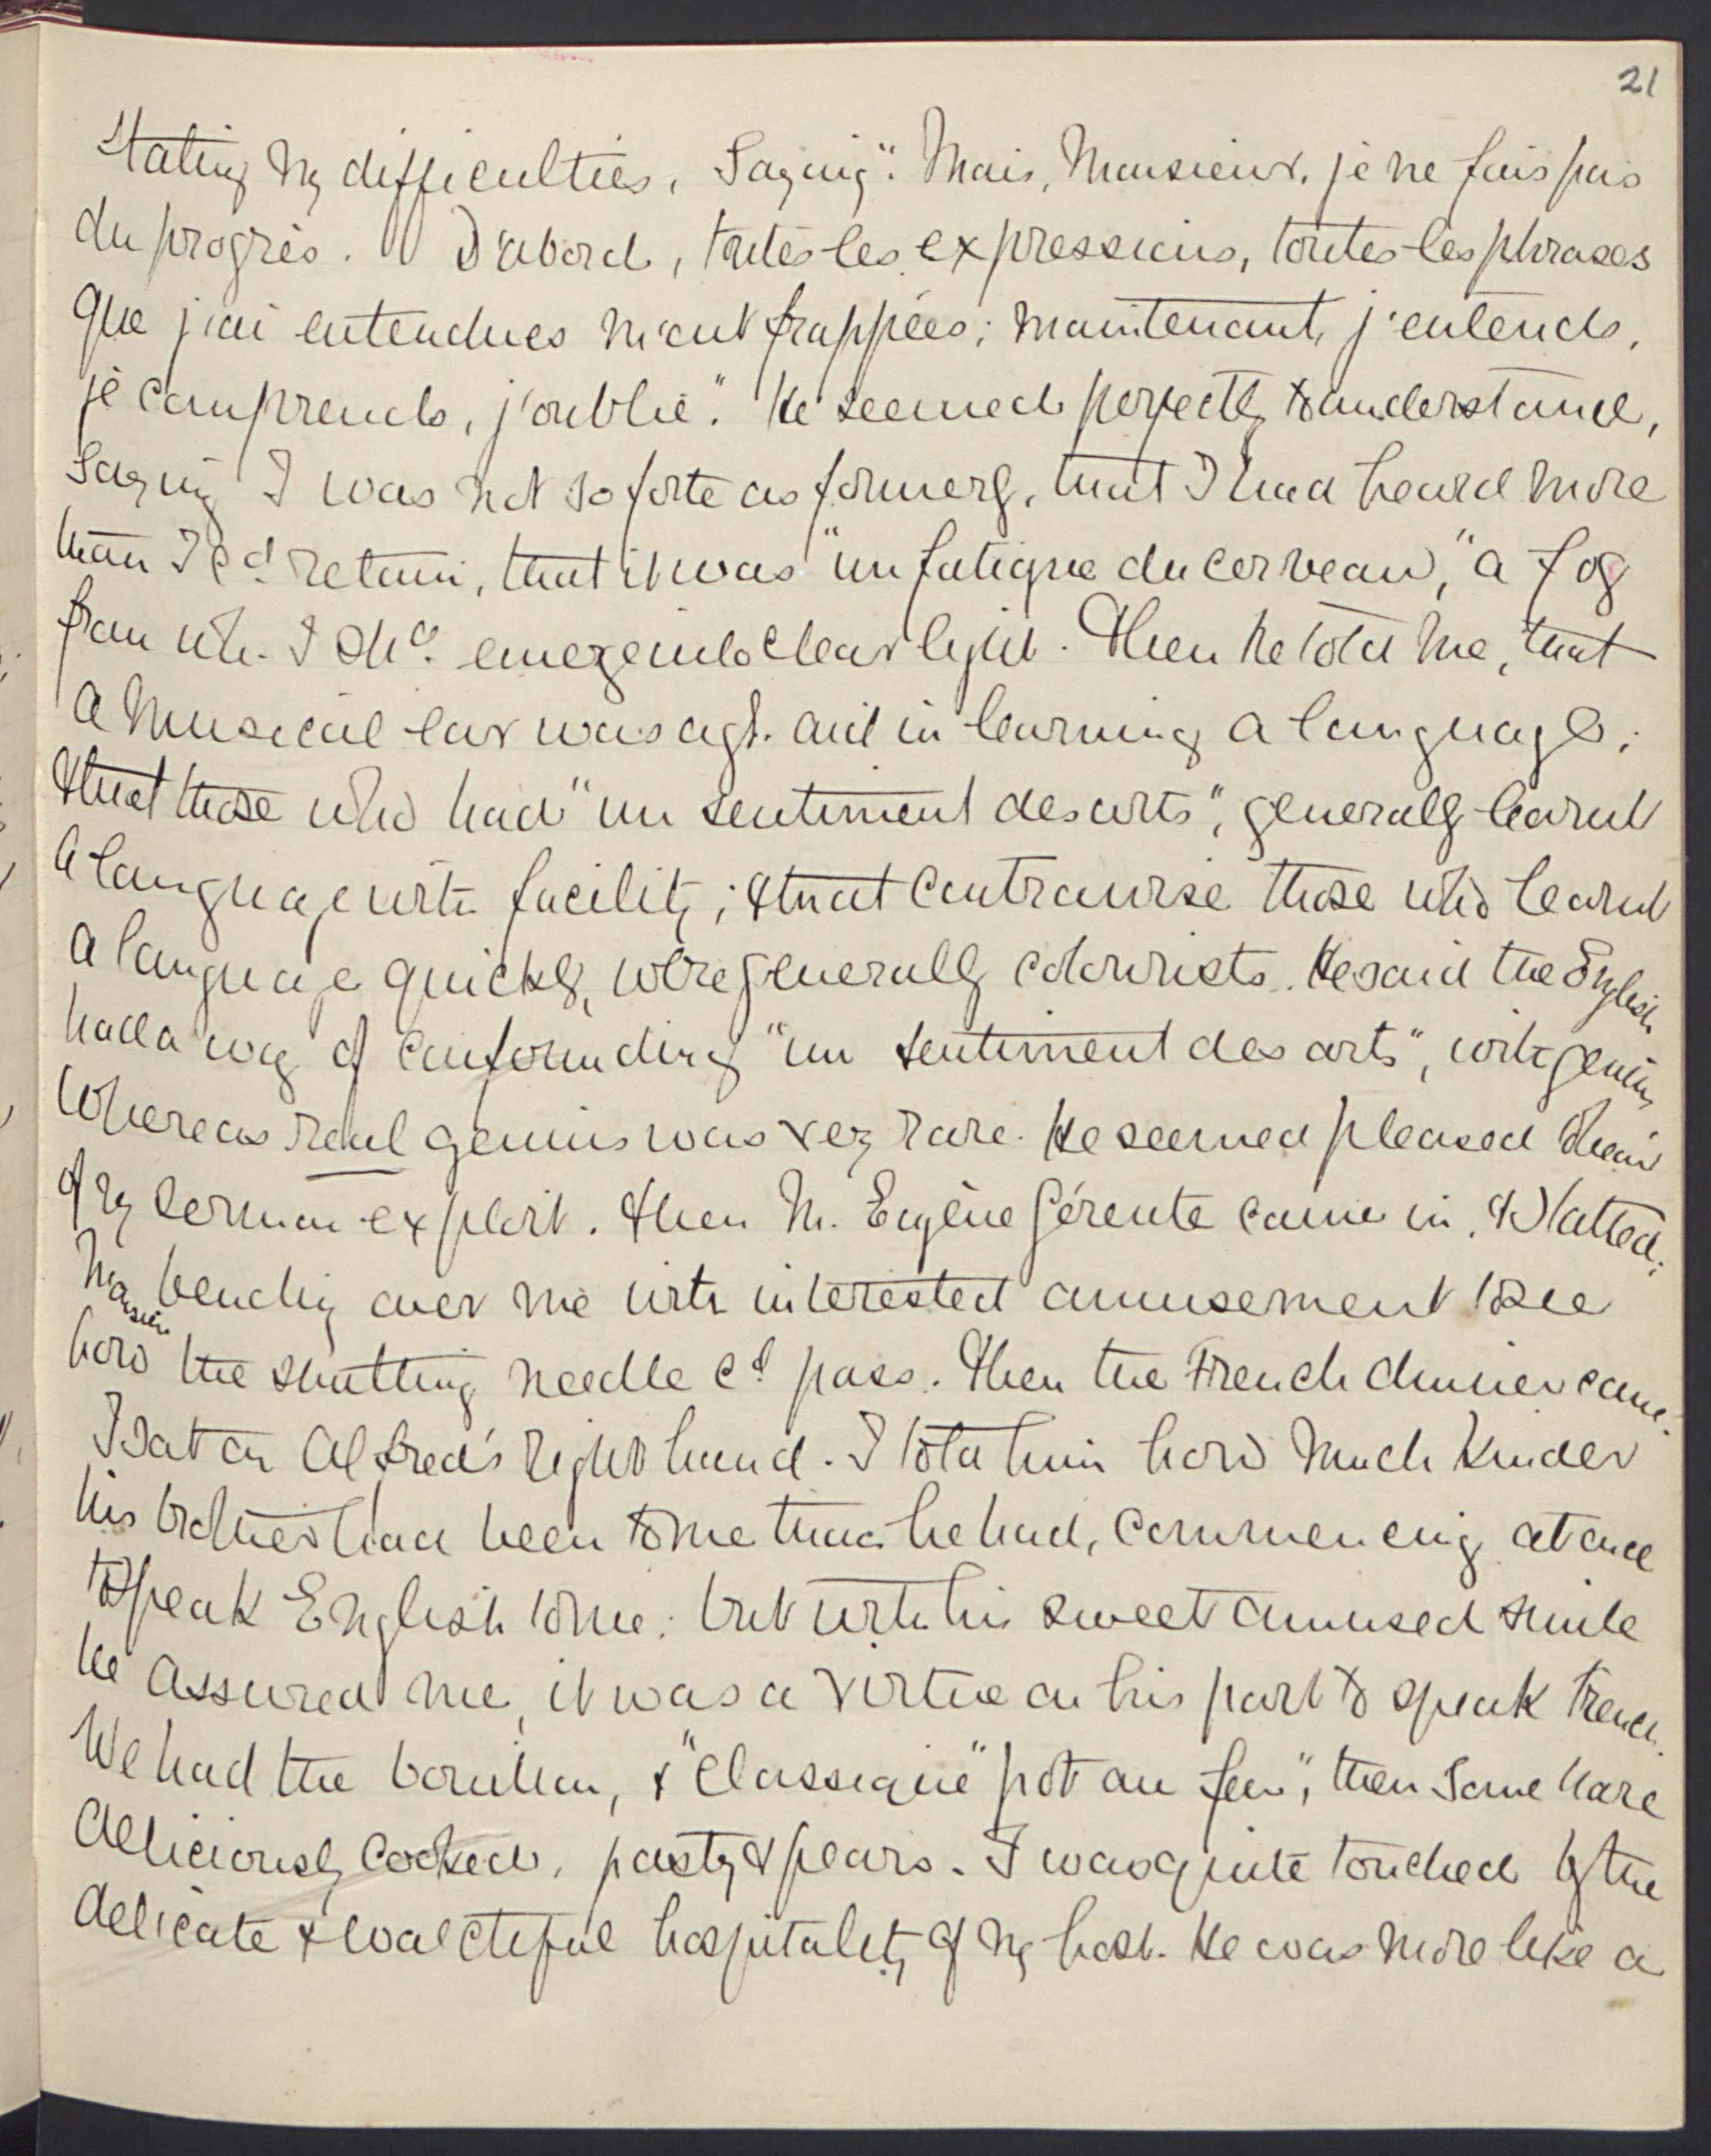 21
Stating my difficulties, Saying "Mais, Monsieur, je ne fais pas
du progrès. D'abord, toutes les expressions, toutes les phrases
que j'ai entendues m'ont frappées; maintenant, j'entends,
je comprends, j'oublie." He seemed perfectly to understand,
Saying I was not so forte as formerly, that I had heard more
than I cd. retain, that it was "un fatigue du cerveau," a fog
from wh. I shd. emerge into clear light. Then he told me, that
a musical ear was a gt. aid in learning a language;
& that those who had "un sentiment des arts", generally learnt
a language with facility; & that contrariwise those who learnt
a language quickly, were generally colourists. He said the English
had a way of confounding "un sentiment des arts", with genius
Whereas real genius was very rare. He seemed pleased to hear
of my German exploit. Then M. Eugène Gérente came in, & I tatted;
Monsieur bending over me with interested amusement to see
how the shutting needle cd. pass. Then the French dinner came.
I sat on Alfred's right hand. I told him how much kinder
his brother had been to me than he had, commencing at once
to speak English to me; but with his sweet amused smile
he assured me, it was a virtue on his part to speak French.
We had the bouillon, & "classique" pot au feu", then some hare
deliciously cooked, pasty & pears. I was quite touched by the
delicate & hospitality of my host. He was more like a